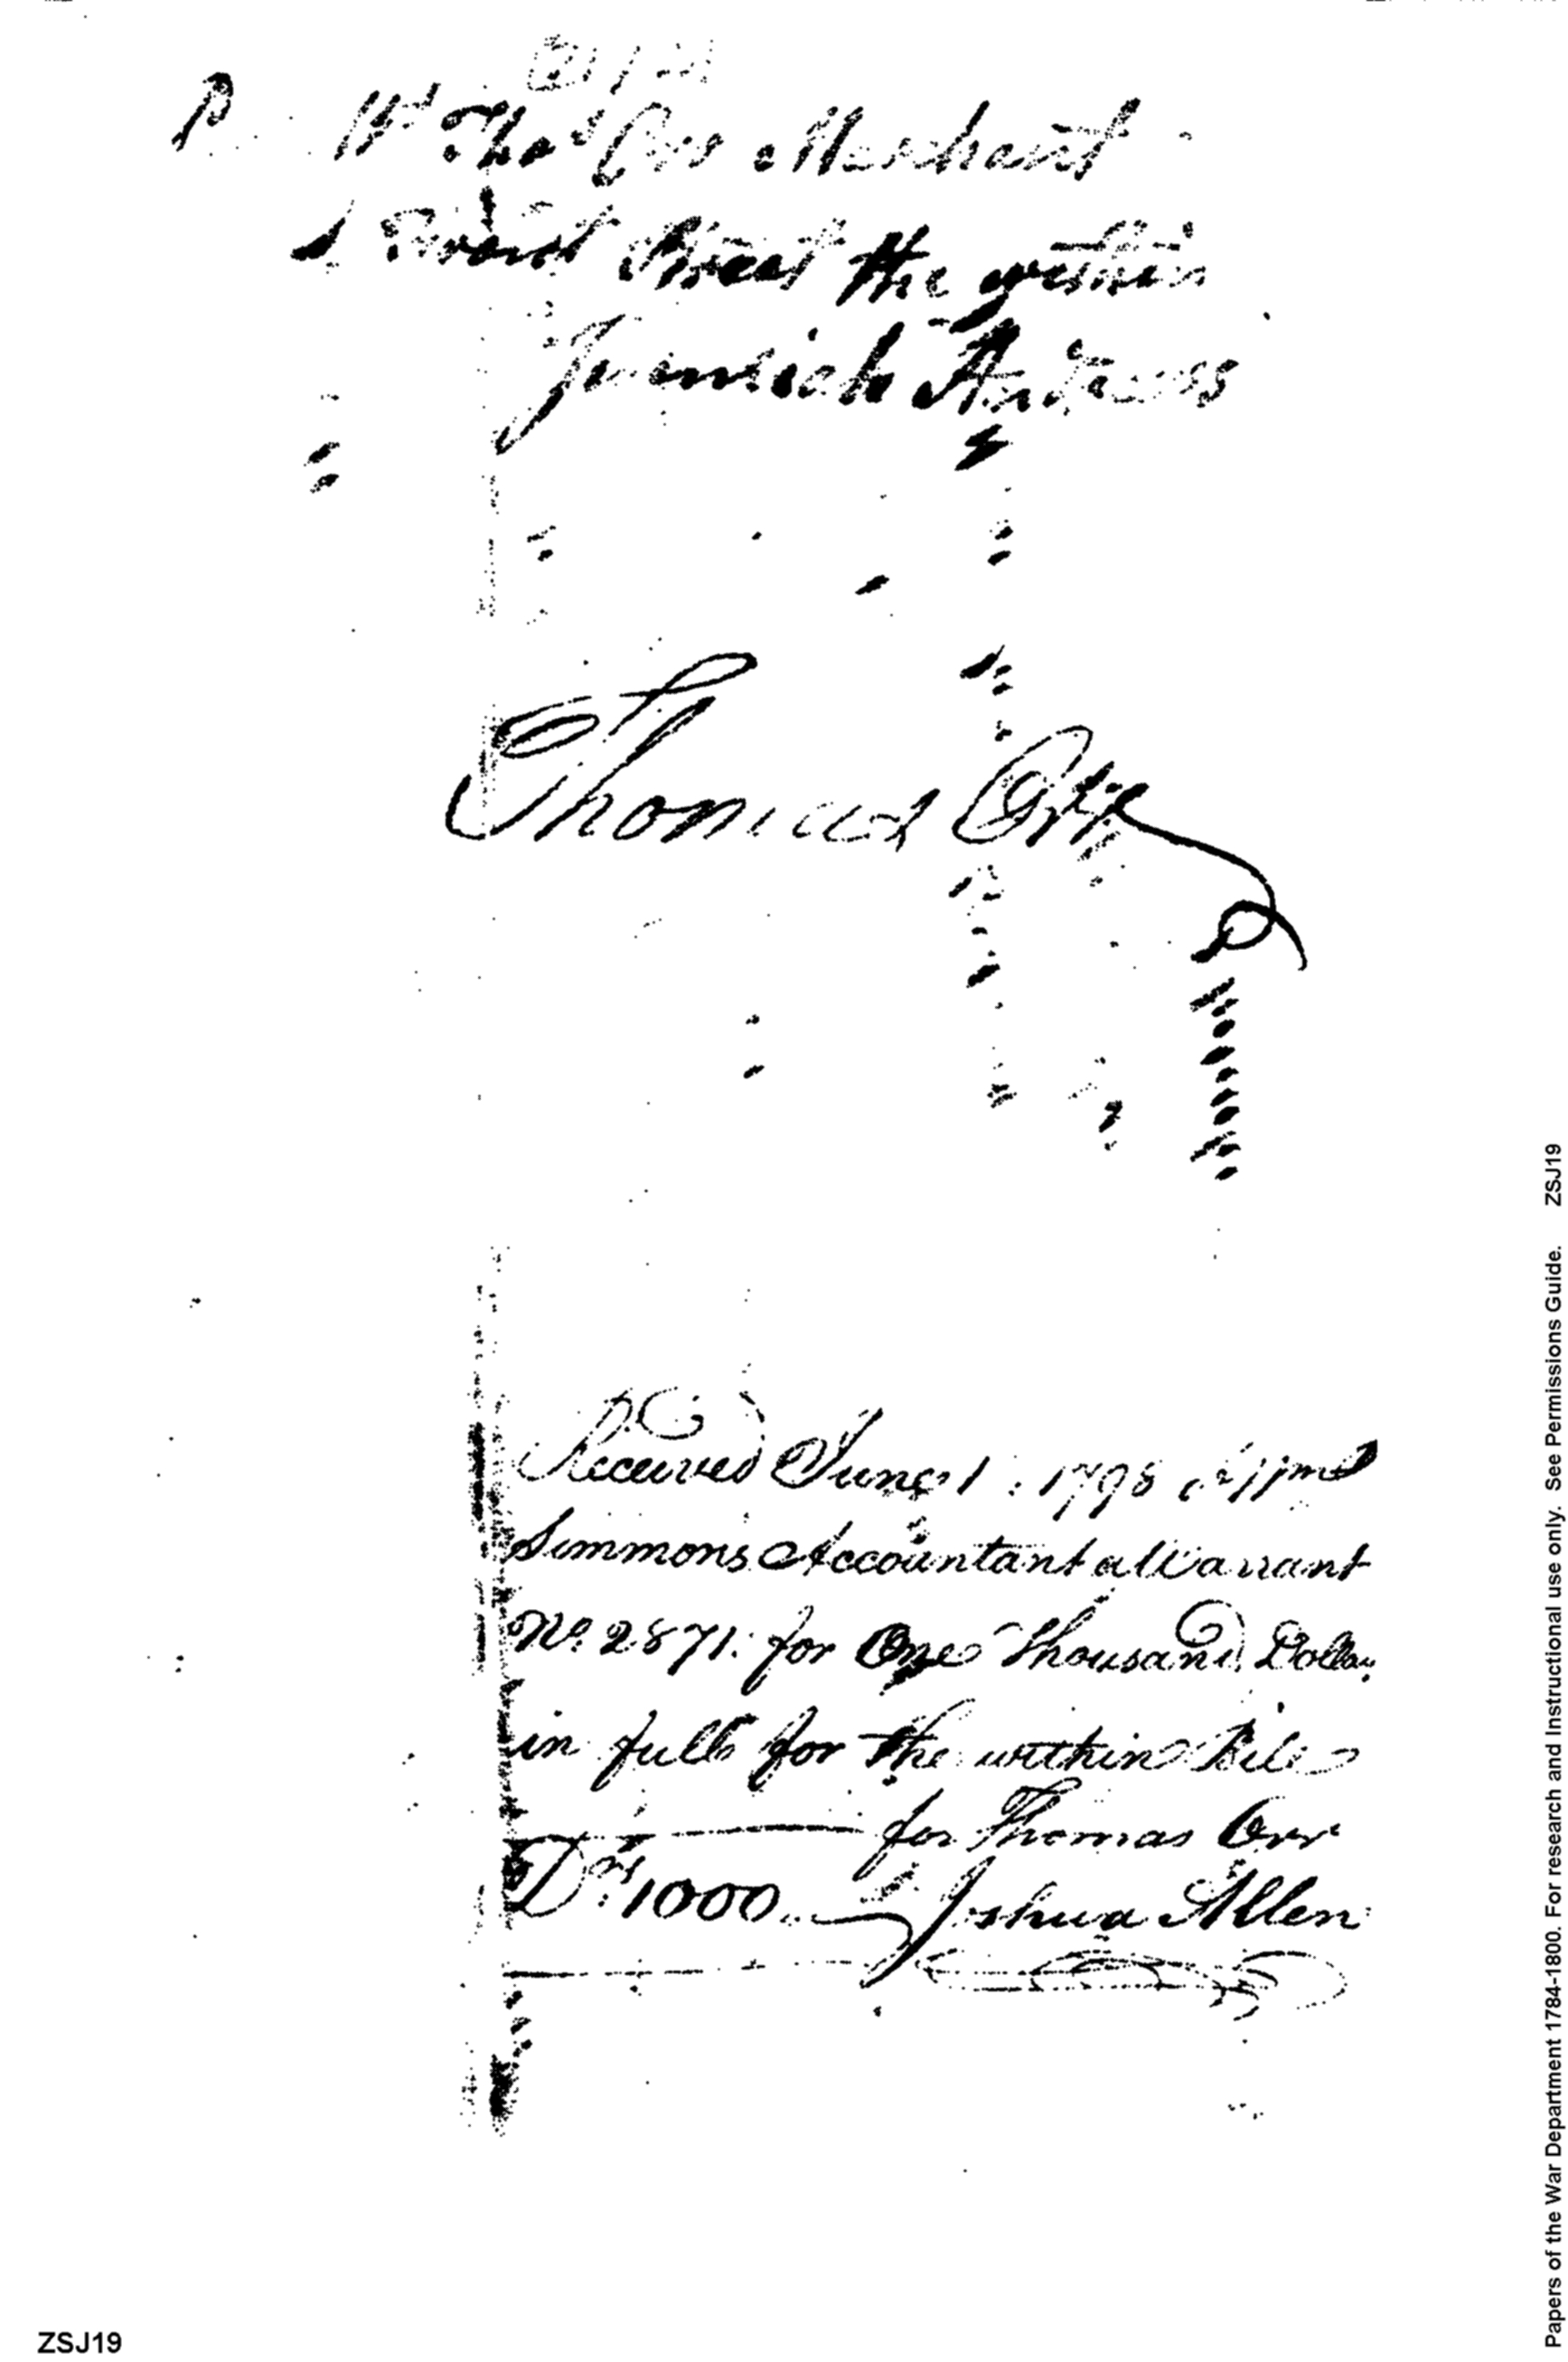 Mr Thos Orr Merchant
Front Street the within
Jeremiah Andrews
Thomas Orr
Received June 1: 1798 of Wm
Simmons Accountant a Warrant
No. 2871. for One Thousand Dollars
in full for the within Bill
for Thomas Orr
Drs 1000 Joshua Allen
ZSJ19
Papers of the War Department 1784-1800. For research and Instructional use only. See Permissions Guide. ZSJ19